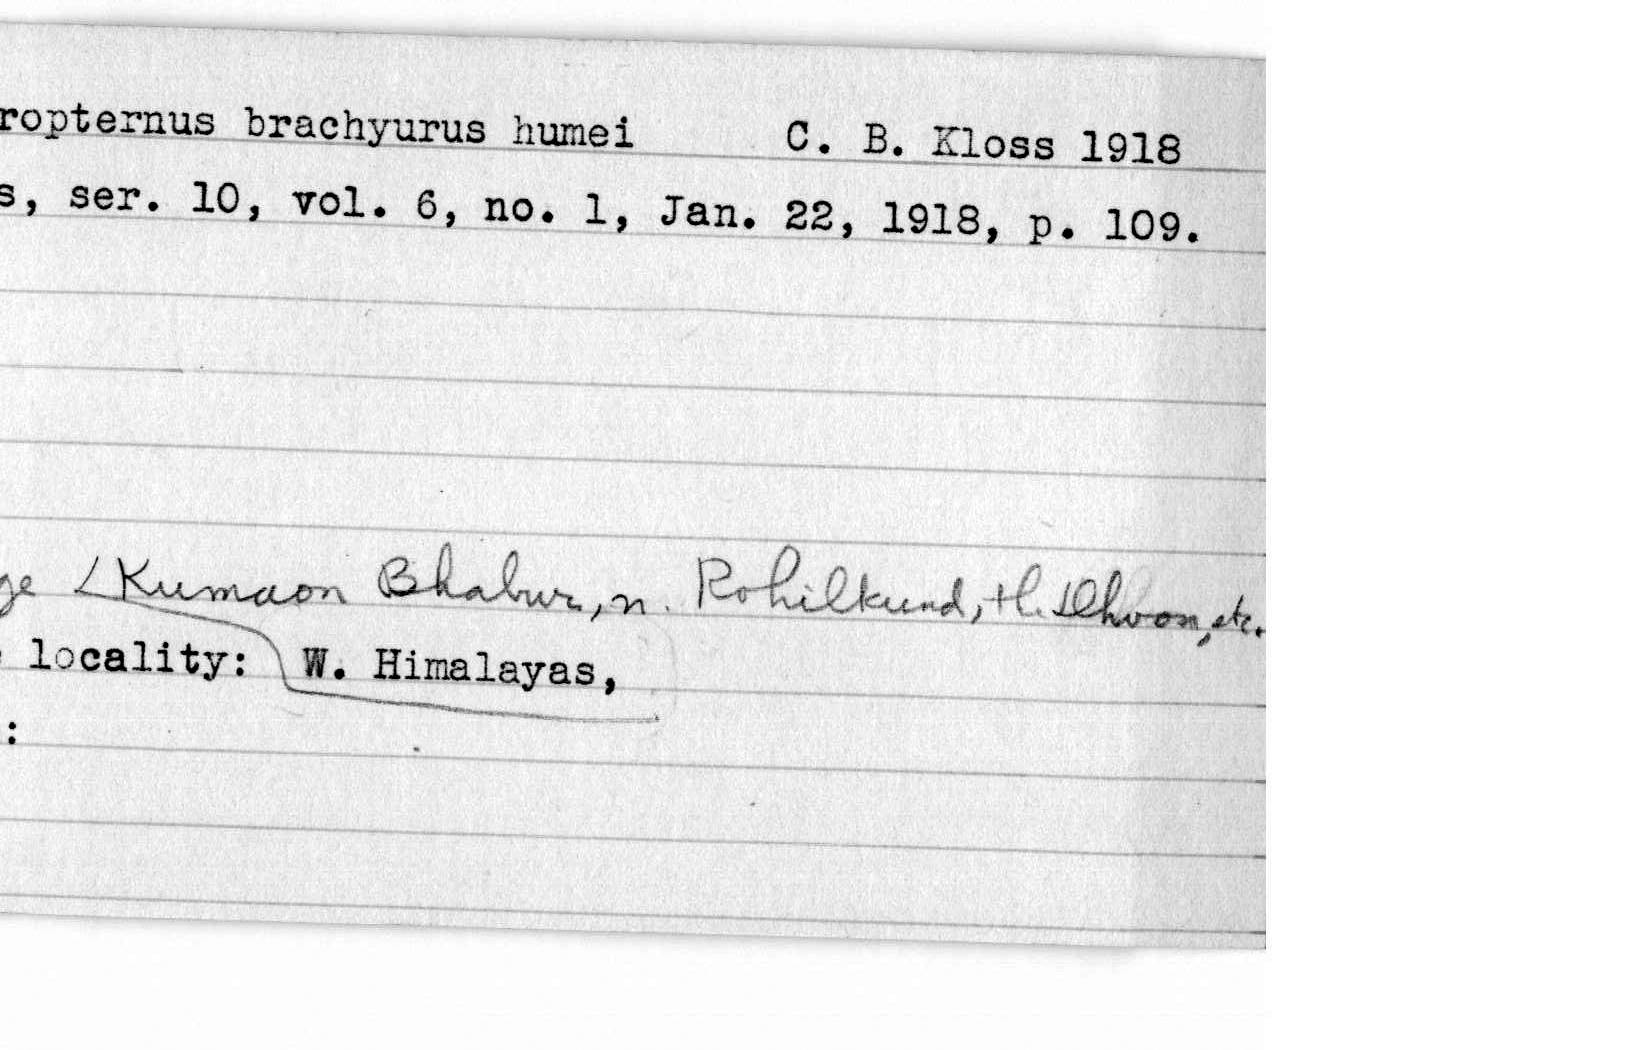 ropternus brachyurus humei C. B. Kloss 1918
s, ser. 10, vol. 6, no. 1, Jan. 22, 1918, p. 109.
ge Kumaon Bhabur, n. Rohilkund, th. Dhoon, etc.
locality: W. Himalayas,
: